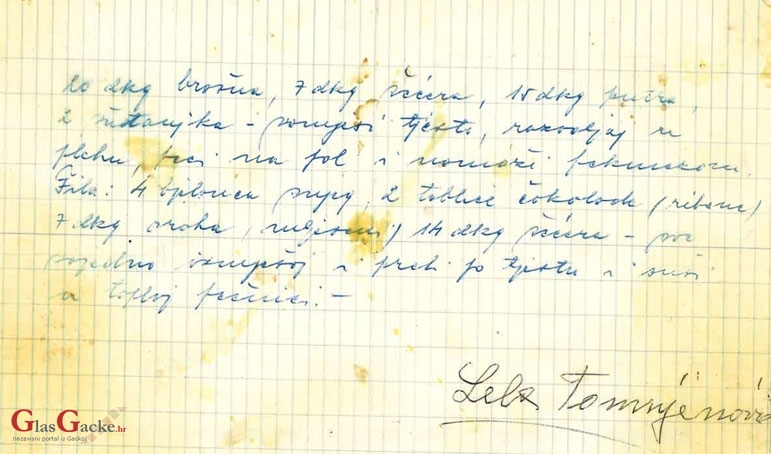 20 dkg brašna, 7 dkg šećera, 15 dkg putra,
2 žutanjka - zamjesi tjesto, razvaljaj u
plehu, peci na pol i namaži pekmezom.
Fila: 4 bjelanca snjeg, 2 table čokolade (ribane)
7 dkg oraha, 14 dkg šećera - sve
zajedno izmješaj i preli po tjestu i suši
u toploj pećnici. -
Lela Tomljenović
GlasGacke.hr
nezavisni portal u Gackoj